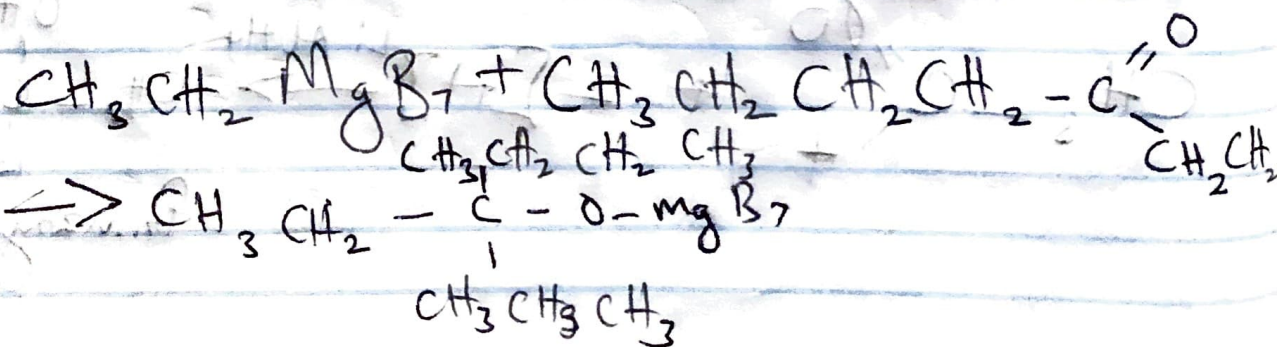 O
CH₃ CH₂ - MgBr + CH₃ CH₂ CH₂ CH₂ - C
CH₂ CH₂
CH₃ CH₂ CH₂ CH₃
-> CH₃ CH₂ - C - O - mg Br
CH₃ CH₃ CH₃